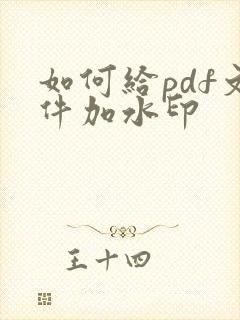 如何給pdf文
件加水印
王十四